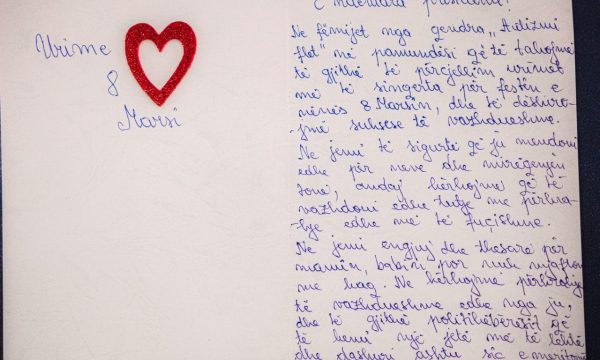 Urime
8
Marsi
E nderuara
Ne fëmijet nga qendra „Autizmi
flet" në pamundësi që të takojmë
të gjithë të përcjellim urimet
më të singerta për festën e
nënës 8 Marsin, dhe të dëshiro-
-jmë suksese të vazhdueshme.
Ne jemi të sigurtë që ju mendoni
edhe për neve dhe mirëqenjen
tonë, andaj kërkojmë që të
vazhdoni edhe tutje me përkra-
-hje edhe më të fuqishme.
Ne jemi engjuj dhe thesare për
mamin, babin por nuk mjafton
me kaq. Ne kërkojmë përkrahje
të vazhdueshme edhe nga ju,
dhe të gjithë politikëbërësit që
të bëni një jetë më të lehtë
dhe dashuri ashtu siç e meritojmë